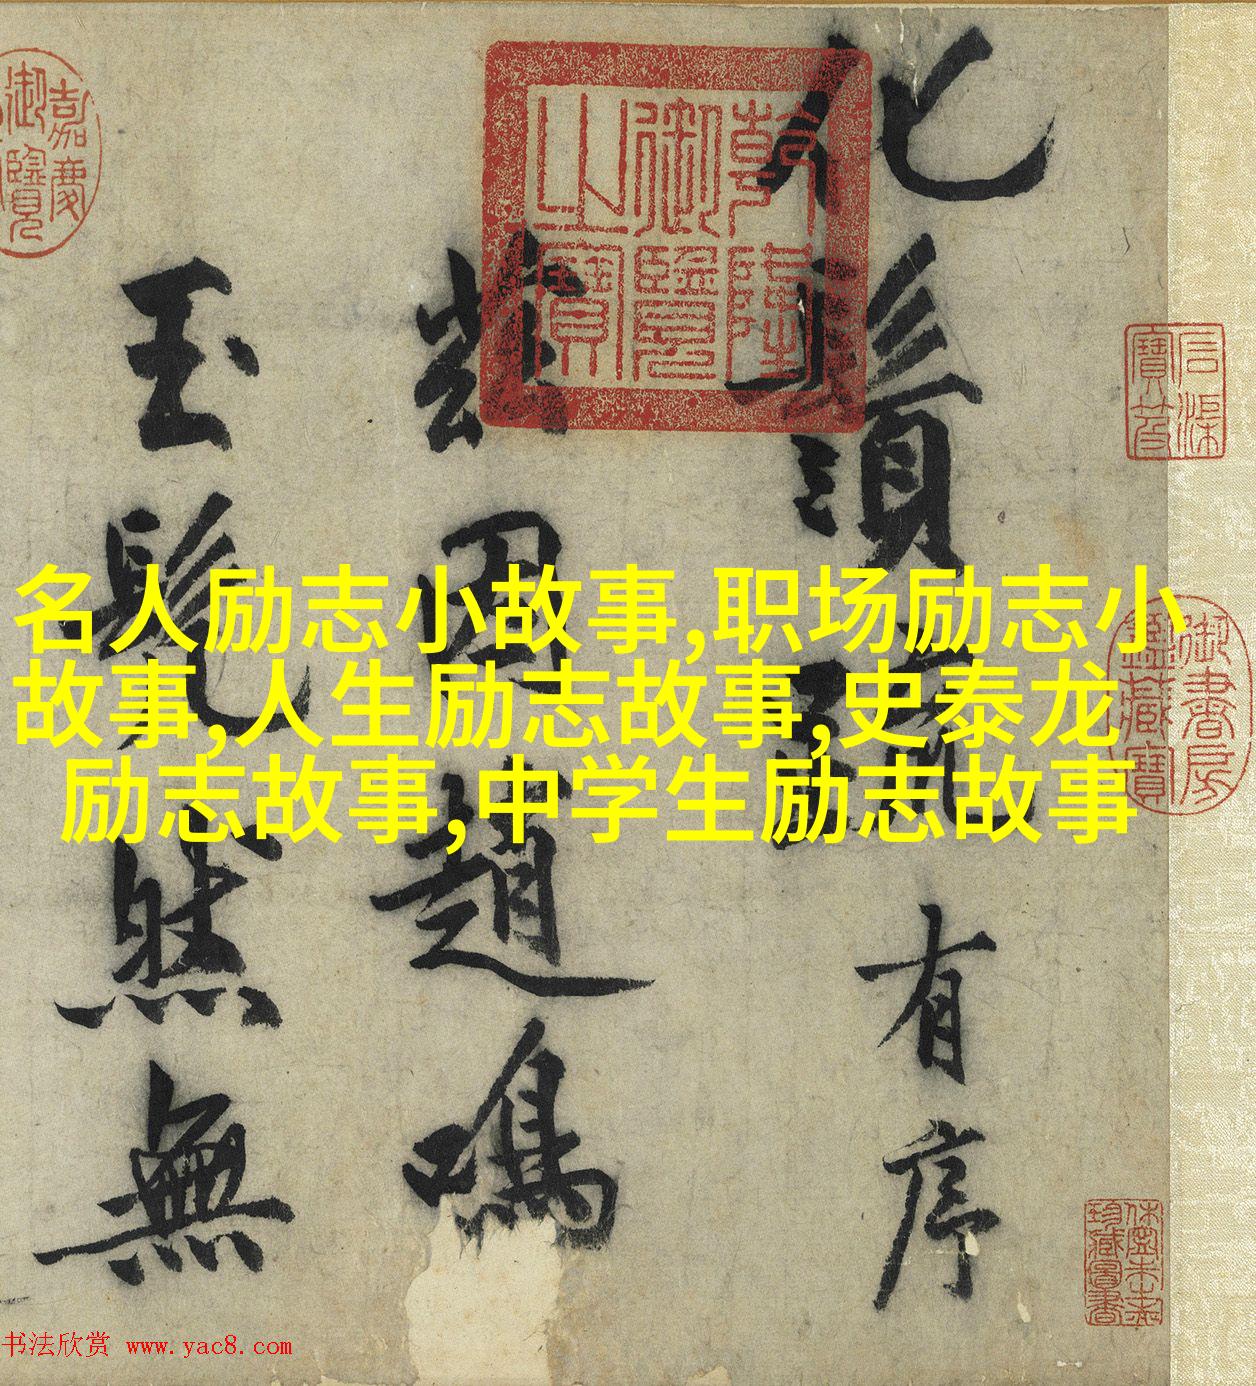 化鬚疏有序
茲因趙鳴
玉髡然無
乾隆
御覽
之寶
嘉慶
御覽
石渠
寶笈
御書房
鑑藏寶
休寧朱之赤
珍藏圖書
名人励志小故事,职场励志小
故事,人生励志故事,史泰龙
励志故事,中学生励志故事
书法欣赏 www.yac8.com